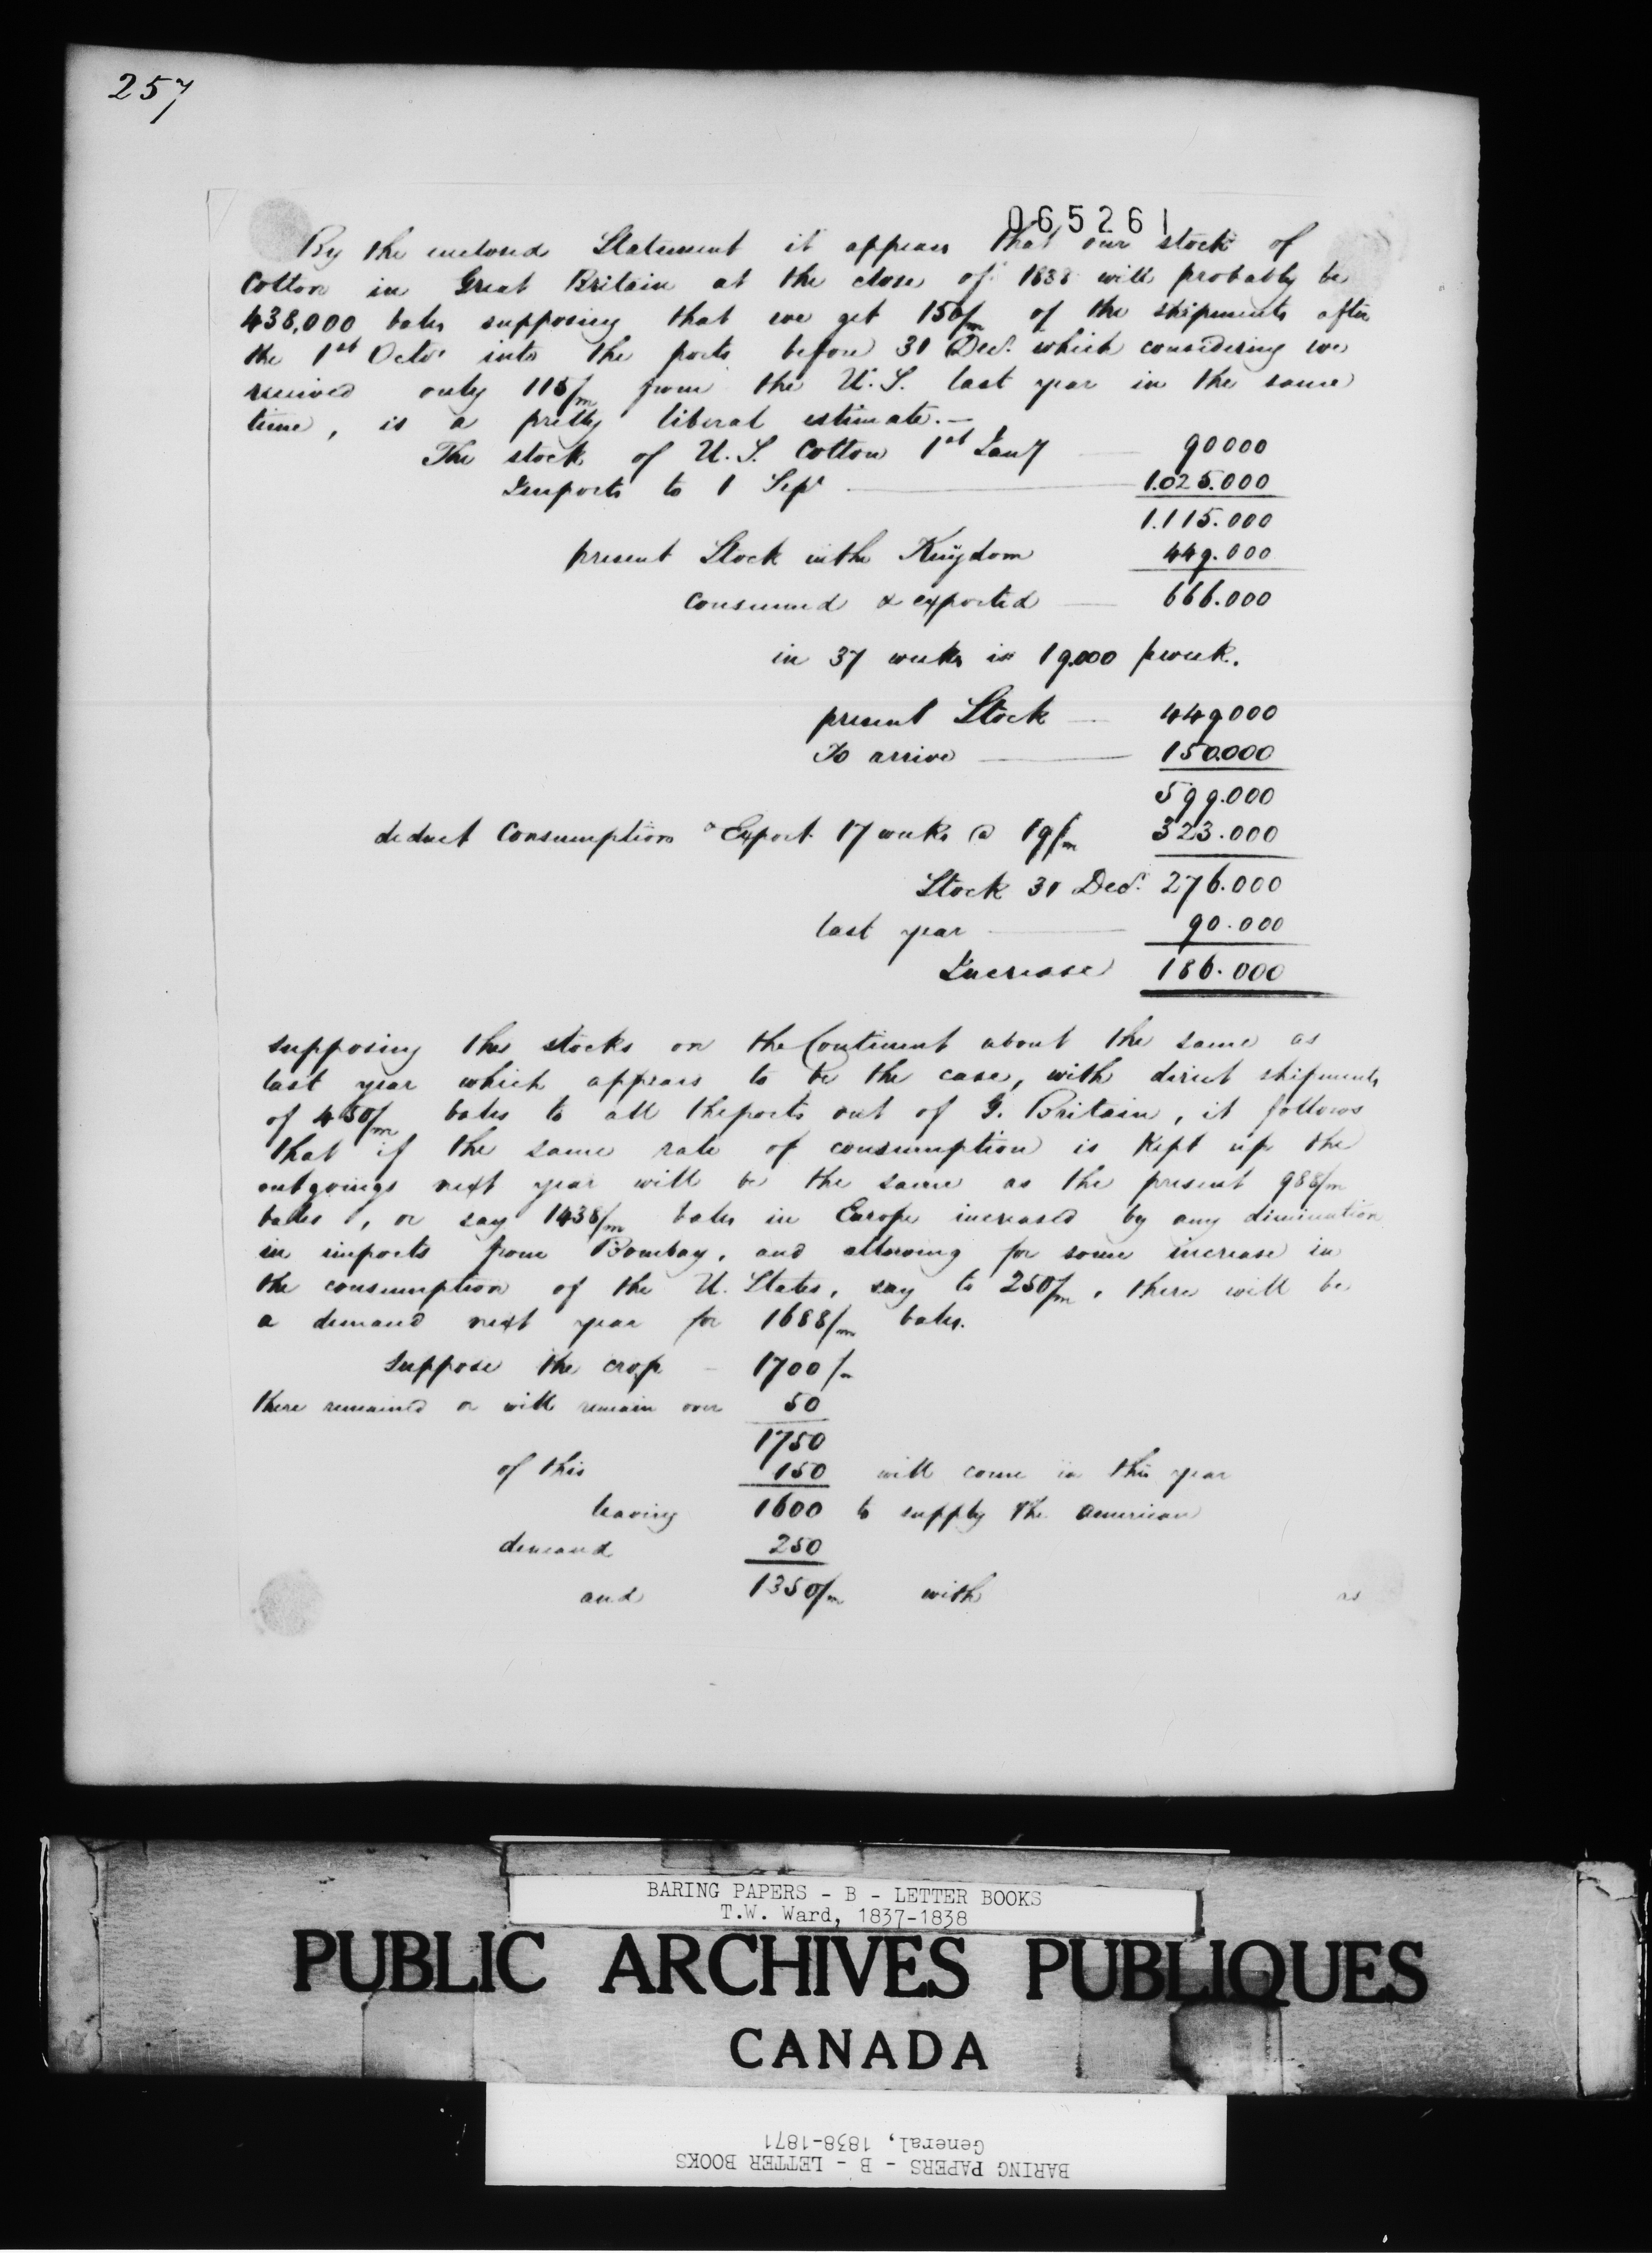 257
065261
By the enclosed Statement it appears that our stock of
Cotton in Great Britain at the close of 1838 will probably be
438,000 bales supposing that we get 150/m of the shipments after
the 1st Octr into the ports before 31 Decr. which considering we
received only 115/m from the U.S. last year in the same
time, is a pretty liberal estimate.—
The stock of U.S. Cotton 1st Jany — 90000
Imports to 1 Sepr — 1.025.000
1.115.000
present Stock in the Kingdom 449.000
Consumed & exported — 666.000
in 37 weeks is 19.000 pweek.
present Stock — 449000
To arrive — 150.000
599.000
deduct Consumption & Export 17 weeks @ 19/m 323.000
Stock 31 Decr. 276.000
last year — 90.000
Increase 186.000
supposing the stocks on the Continent about the same as
last year which appears to be the case, with direct shipments
of 450/m bales to all the ports out of G. Britain, it follows
that if the same rate of consumption is kept up the
outgoings next year will be the same as the present 988/m
bales, or say 1438/m bales in Europe increased by any diminution
in imports from Bombay, and allowing for some increase in
the consumption of the U. States, say to 250/m, there will be
a demand next year for 1688/m bales.
Suppose the crop — 1700/m
there remained or will remain over 50
1750
of this 150 will come in this year
leaving 1600 to supply the American
demand 250
and 1350/m with as
BARING PAPERS - B - LETTER BOOKS
T.W. Ward, 1837-1838
PUBLIC ARCHIVES PUBLIQUES
CANADA
BARING PAPERS - B - LETTER BOOKS
General, 1838-1871